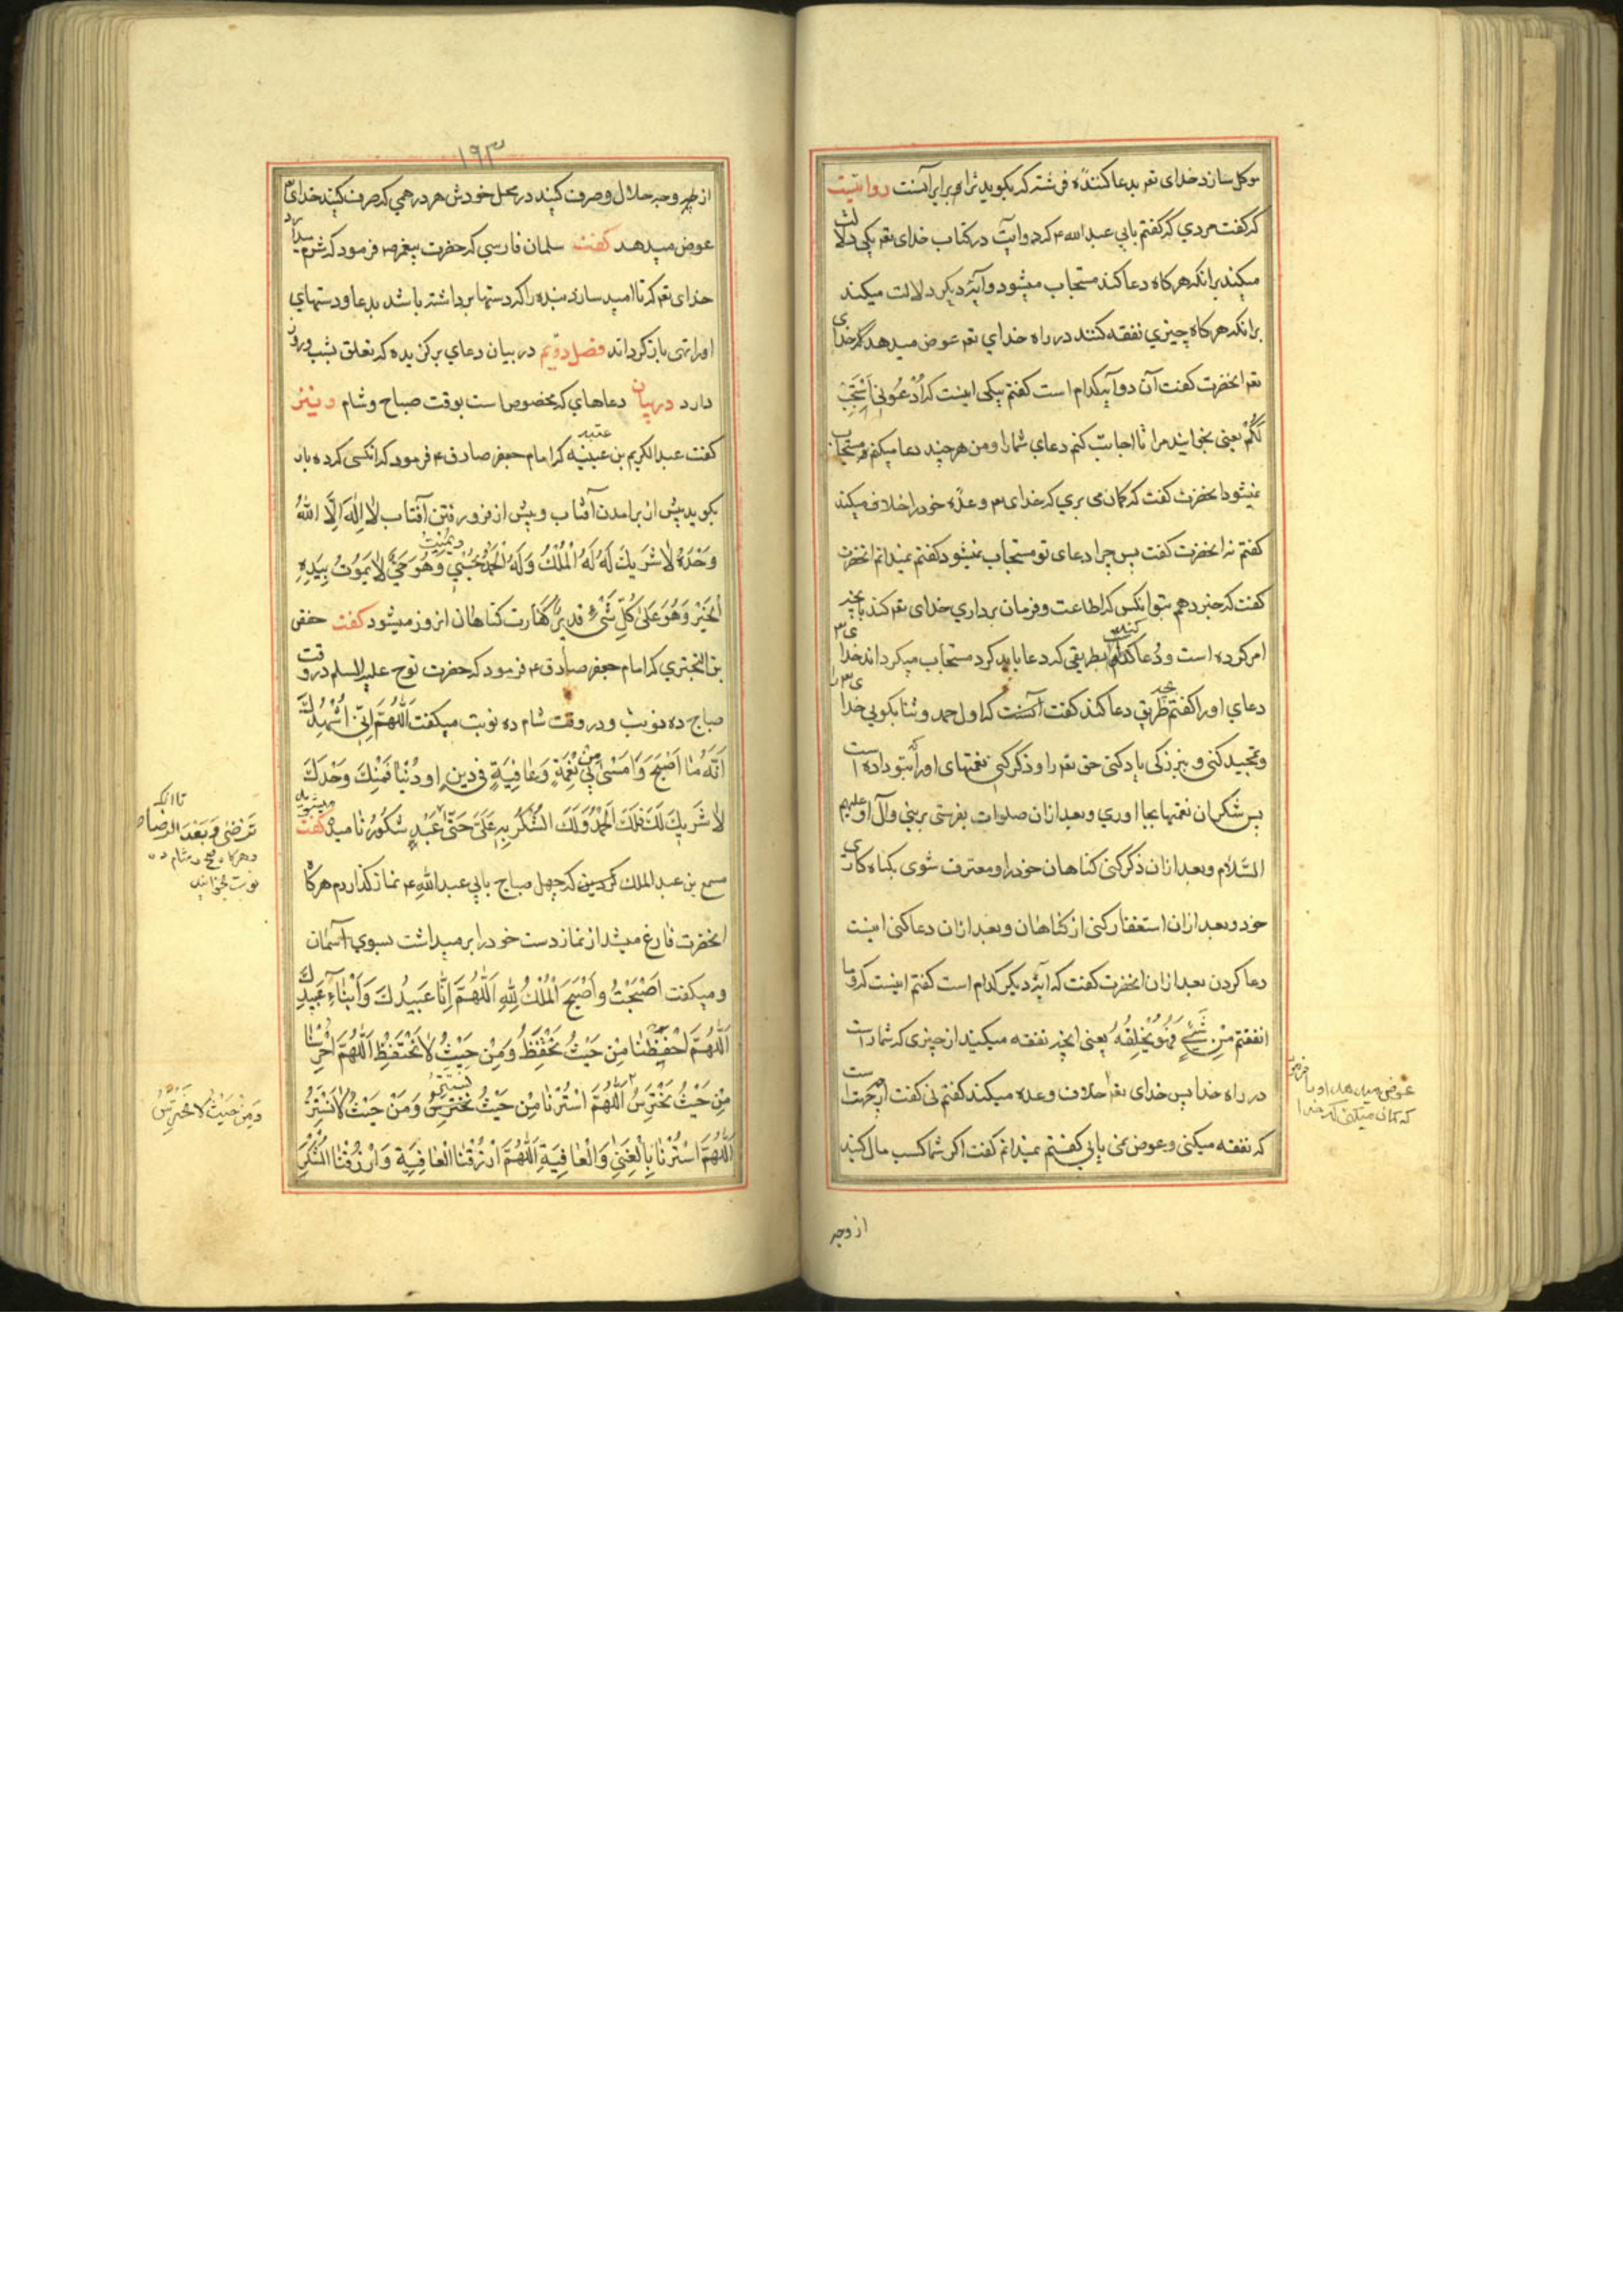 موکل سازد خدای تعـ بدعا کننده فرشته که بکوید ترا هم برابر آنست روایتیست
که کفت مردی که کفتم بابی عبد الله ع که دو آیت در کتاب خدای تعـ یکی دلالت
میکند برانکه هرکاه دعا کند مستجاب میشود و آیهٔ دیکر دلالت میکند
برانکه هرکاه چیزی نفقه کنند در راه خدای تعـ عوض میدهد که خدای
تعـ انحضرت کفت آن دو آیه کدام است کفتم یکی اینست که اُدْعُونِی اَسْتَجِبْ
لَکُمْ یعنی بخوانید مرا تا اجابت کنم دعای شما را و من هرچند دعا میکنم مستجاب
نمیشود انحضرت کفت که کمان می بری که خدای وعدهٔ خود را خلاف میکند
کفتم نه انحضرت کفت پس چرا دعای تو مستجاب نمیشود کفتم نمیدانم انحضرت
کفت که خبر دهم بتو انکس که اطاعت و فرمان برداری خدای تعـ کند بانچه
امر کرده است و دعا کند بطریقی که دعا باید کرد مستجاب میکرداند خدای
دعای او را کفتم بچه طریق دعا کند کفت آنست که اول حمد و ثنا بکویی خدای را
و تمجید کنی و ببزرکی یاد کنی حق تعـ را و ذکر کنی نعمتهای او را که بتو داده است
پس شکر ان نعمتها بجا اوری و بعد ازان صلوات بفرستی بر نبی و آل او علیهم
السّلام و بعد ازان ذکر کنی کناهان خود را و معترف شوی بکناه کاری
خود و بعد ازان استغفار کنی از کناهان و بعد ازان دعا کنی اینست
دعا کردن بعد ازان انحضرت کفت که آیهٔ دیکر کدام است کفتم اینست که وما
انفقتم مِنْ شَیْءٍ فَهُوَ یُخْلِفُهُ یعنی انچه نفقه میکنید از چیزی که شما راست
در راه خدا پس خدای تعـ
عوض میدهد او را فرمود
که کمان میکنی که خدا
خلاف وعده میکند کفتم نی کفت از چه جهت است
که نفقه میکنی و عوض نمی یابی کفتم نمیدانم کفت اکر شما کسب مال کنید
از وجه
۱۹۳
از وجه حلال و صرف کنید در محل خودش هر درهمی که صرف کنید خدای
عوض میدهد کفت سلمان فارسی که حضرت پیغمبر ص فرمود که شرم میدارد
خدای تعـ که نا امید سازد بنده را که دستها برداشته باشد بدعا و دستهای
او را تهی باز کرداند فصل دویم در بیان دعای برکزیده که تعلق بشب و روز
دارد در بیان دعاهای که مخصوص است بوقت صباح و شام و نیز
کفت عبد الکریم بن عیینه که امام جعفر صادق ع فرمود که انکسی که ده بار
عتبه
بکوید پیش از برامدن آفتاب و پیش از فرو رفتن آفتاب لا اِلٰهَ اِلَّا اللهُ
وَحْدَهُ لا شَرِیكَ لَهُ لَهُ الْمُلْكُ وَلَهُ الْحَمْدُ یُحْیِی ویُمِیتُ وَهُوَ حَیٌّ لا یَمُوتُ بِیَدِهِ
الْخَیْرُ وَهُوَ عَلیٰ کُلِّ شَیْءٍ قَدِیرٌ کفارت کناهان انروز میشود کفت حفص
بن البختری که امام جعفر صادق ع فرمود که حضرت نوح علیه السلم در وقت
صباح ده نوبت و در وقت شام ده نوبت میکفت اَللّٰهُمَّ اِنّی اُشْهِدُكَ
اَنَّهُ مٰا اَصْبَحَ وَاَمْسیٰ بِی مِنْ نِعْمَةٍ وَعٰافِیَةٍ فِی دِینٍ اودُنْیٰا فَمِنْكَ وَحْدَكَ
لاٰ شَرِیكَ لَكَ فَلَكَ الْحَمْدُ وَلَكَ الشُّکْرُ بِهِ عَلَیَّ حَتّیٰ
تا انکه
تَرْضیٰ وَبَعْدَ الرِّضٰا
هرکاه صبح و شام ده
نوبت بخوانید
عَبْدٍ شَکُورٌ نامیده میشود کفت
مسمع بن عبد الملك کردین که چهل صباح بابی عبد الله ع نماز کذاردم هرکاه
انحضرت فارغ میشد از نماز دست خود را بر میداشت بسوی آسمان
ومیکفت اَصْبَحْتُ وَاَصْبَحَ الْمُلْكُ لِلّٰهِ اَللّٰهُمَّ اِنّٰا عَبِیدُكَ وَاَبْنٰاءُ عَبِیدِكَ
اَللّٰهُمَّ احْفِظْنٰا مِنْ حَیْثُ نَحْتَفِظُ وَمِنْ حَیْثُ لاٰ نَحْتَفِظُ اَللّٰهُمَّ احْرُسْنٰا
مِنْ حَیْثُ نَحْتَرِسُ
وَمِنْ حَیْثُ لاٰ نَحْتَرِسُ
اَللّٰهُمَّ اسْتُرْنٰا مِنْ حَیْثُ نَسْتَتِرُ وَمِنْ حَیْثُ لاٰ نَسْتَتِرُ
اَللّٰهُمَّ اسْتُرْنٰا بِالْغِنیٰ وَالْعٰافِیَةِ اَللّٰهُمَّ ارْزُقْنَا الْعٰافِیَةَ وَارْزُقْنَا الشُّکْرَ